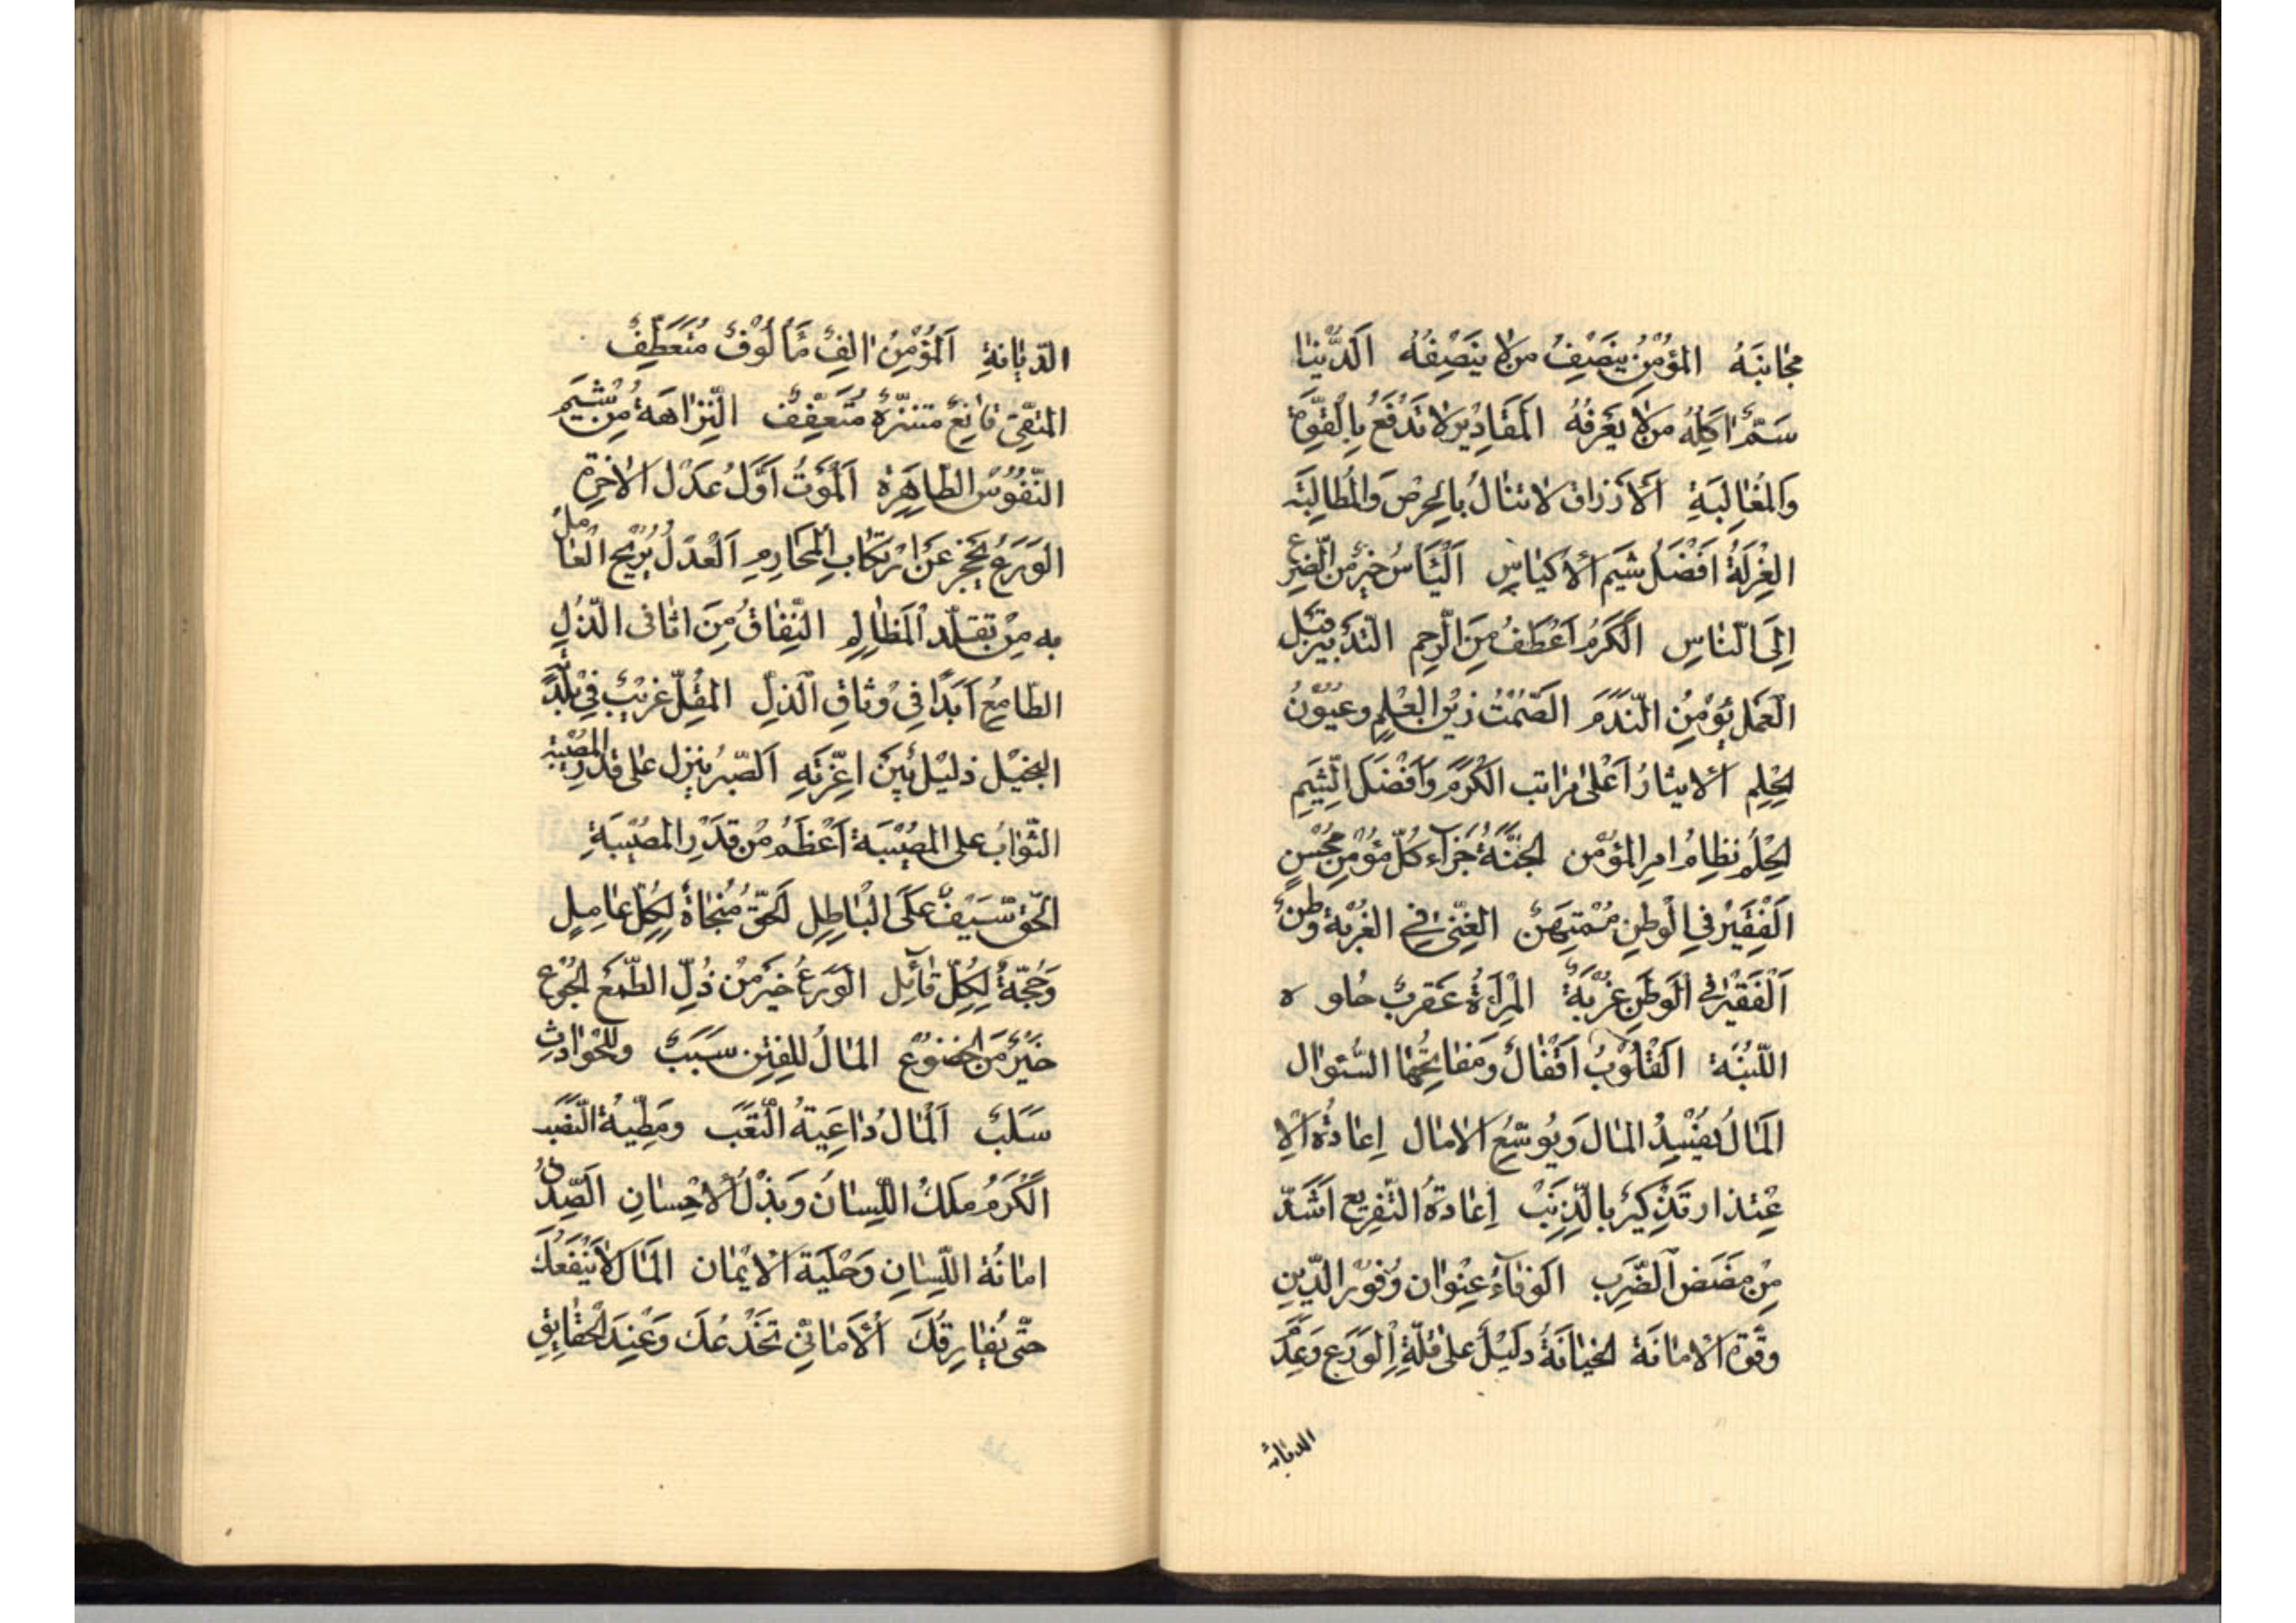 مجانبَهُ المؤمِنُ ينصِفُ من لا ينصِفُه الَدُّنيٰا
سَمٌّ اٰكلِهُ من لاٰ يَعرفُهُ المَقَاديٖر لا تَدْفَعُ بِالْقوّة
وَالمغٰالبَةِ اَلأرزاق لا تنالُ بالحِرْصِ وَالمُطالبَة
العُزلَةُ اَفْضَلُ شيَم الأكيٰاسِ اَليَأسُ خيرٌ من التضرع
اِلَى النّاسِ الكَرَمُ اَعْطَفُ مِنَ الرّحِمِ التدَبيرُ قبَل
العَمَل يؤمِنُ النّدَمَ الصّمْتُ زيْنُ العِلمِ وعيُوْنُ
الحِلِمِ الايثارُ اَعْلىٰ مراتب الكَرَم وَاَفْضَل الشّيَمِ
الحِلْمُ نظٰامُ امرِ المؤمن الجنّةُ جَزآء كُلّ مؤمِنٍ مُحْسنٍ
اَلْفَقيْر في الوطنِ مُمْتهَنٌ الغِنىٰ في الغربْة وطنٌ
اَلْفَقيْر في الوَطَنِ غُرْبَةٌ المْرأةُ عَقربٌ حُلو ه
اللّسْبَة اَلقُلُوْبُ اَقْفٰالٌ وَمَفاتِحُهٰا السُّئوٰال
المَالُ يفسِدُ المٰالَ وَيُوسّعُ الامٰال إعٰادَة الاِ
عْتذار تَذكيرٌ بالذّنبْ إعادةُ التّقريع اَشَدّ
مِنْ مضَض الضّرَب الوَفآءُ عنوان وُفوْر الدّين
وقُوّة الامانَة الخيٰانَةُ دَليْلٌ على قلّةِ الوَرَع وَعَدَم
الديانه
الدّيٰانةِ اَلمُؤْمِنُ اٰلِفٌ مَأْلُوْفٌ مُتَعَطِّفٌ
المتقّي قانِعٌ متنزّهٌ مُتَعفِّفٌ النّزاهَة مِن شيَم
النّفُوْس الطّاهِرَة اَلْموَتُ اَوّلُ عدْل الاخرة
الوَرَعُ يحْجزُ عَنْ ارتكٰابِ المَحَارِمِ اَلْعَدْلُ يُريْح العٰامل
به مِنْ تقلّد المَظٰالِمِ النّفِاقُ مِنَ اثافى الذّلِ
الطّامِعُ اَبَدًا في وثاقِ الذلِّ المقُلّ غريْبٌ في بلَدَه
البَخيْل ذليْل بَيْنَ اعِزّتهِ اَلصّبرُ ينزل على قدْر المُصيْبَة
الثّوابُ على المصيْبَة اَعْظمُ من قدَرِ المُصيْبَةِ
الحَقّ سَيْفٌ عَلَى البْاطِل الحَقّ مُنجٰاةٌ لكِلّ عٰامِلٍ
وَحُجّةٌ لِكُلّ قٰآئِل الوَرَعُ خيْرٌ منْ ذُلِّ الطّمَعُ الجُوْع
خيْرٌ مَنَ الخضوْع المَالُ للفِتنِ سَبَبٌ وللحْوادِثِ
سَلبٌ اَلمْالُ دٰاعِيَةُ التّعَب ومَطيّةُ النّصَب
الكَرَمُ ملكُ اللّسٰانَ وَبذْلُ الاحْسان اَلصِّدقُ
امانَة اللّسان وَحْليَة الاْيْمان المَال لاٰ ينْفَعُكَ
حتّى يُفٰارِقُكَ اَلأَمانِيُّ تَخْدَعُكَ وَعْنِدَ الحْقايِقِ